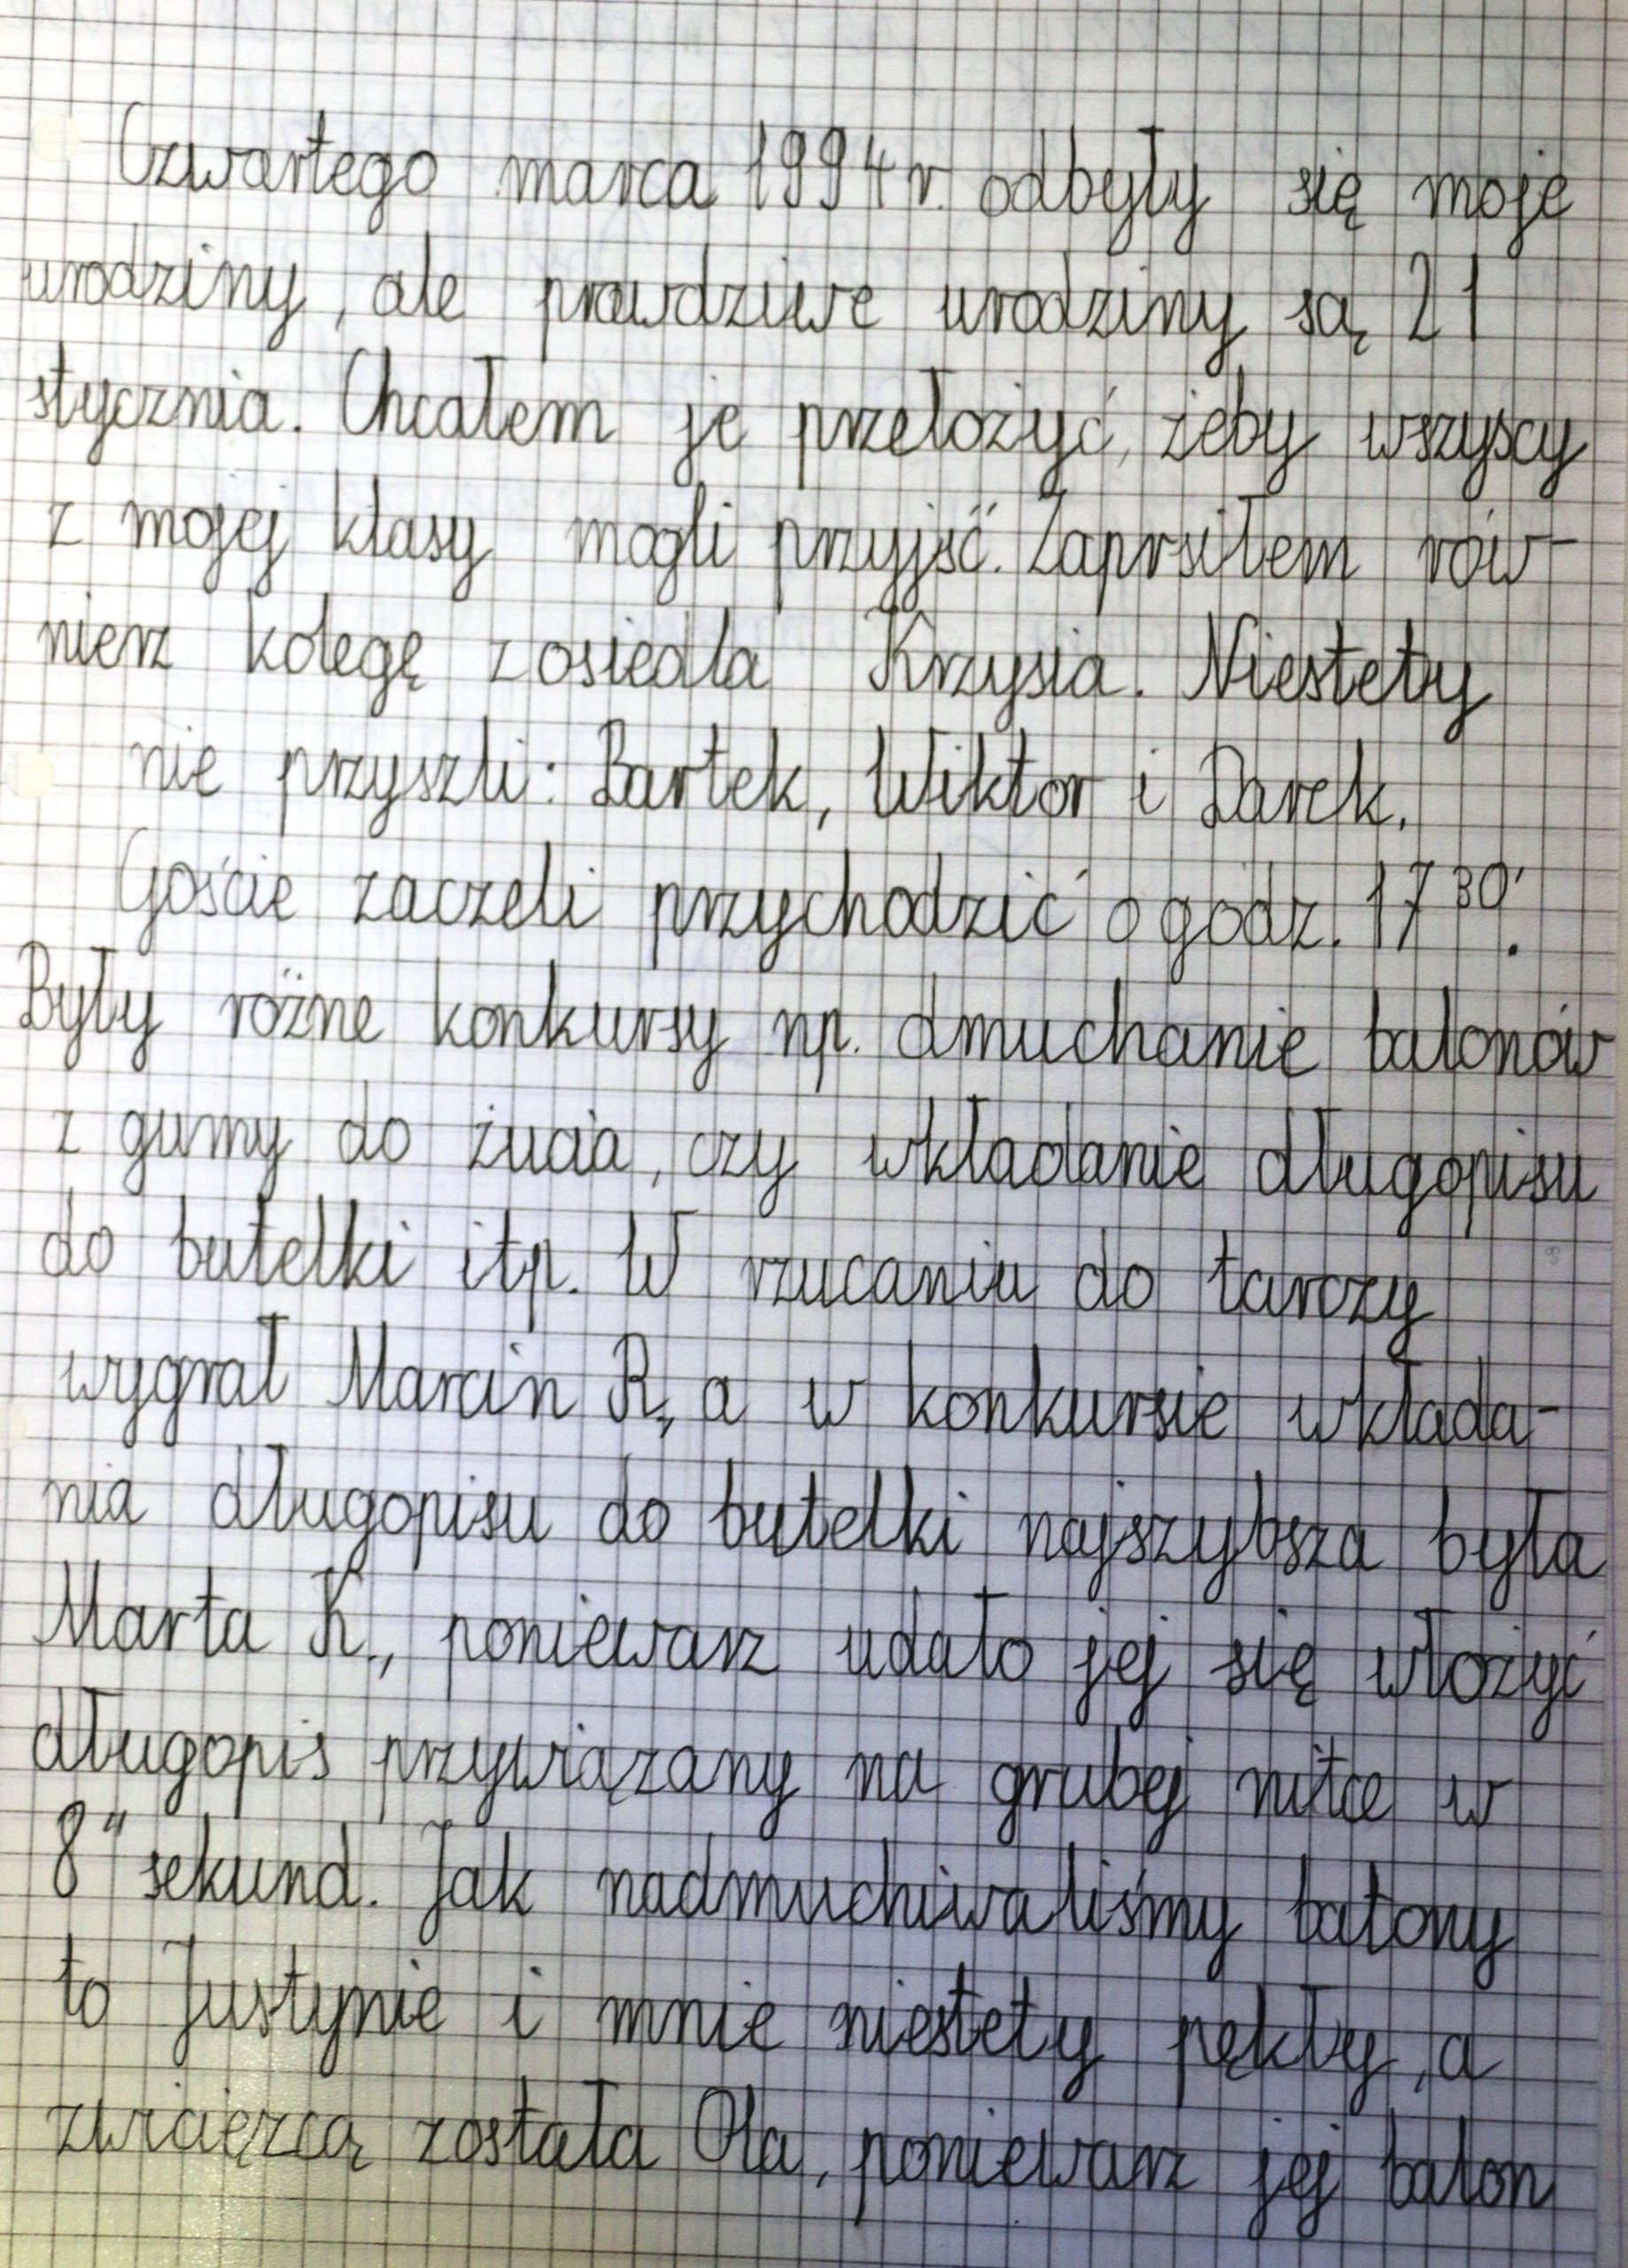 Czwartego marca 1994 r. odbyły się moje
urodziny, ale prawdziwe urodziny są 21
stycznia. Chcałem je przełożyć, żeby wszyscy
z mojej klasy mogli przyjść. Zaprsiłem rów-
nierz kolegę z osiedla Krzysia. Niestety
nie przyszli: Bartek, Wiktor i Darek.
Goście zaczeli przychodzić o godz. 17³⁰'.
Były różne konkursy np. dmuchanie balonów
z gumy do żucia, czy wkładanie długopisu
do butelki itp. W rzucaniu do tarczy
wygrał Marcin R., a w konkursie wkłada-
nia długopisu do butelki najszybsza była
Marta K., poniewarz udało jej się włożyć
długopis przywiązany na grubej nitce w
8" sekund. Jak nadmuchiwaliśmy balony
to Justynie i mnie niestety pękły, a
zwcięzcą została Ola, poniewarz jej balon